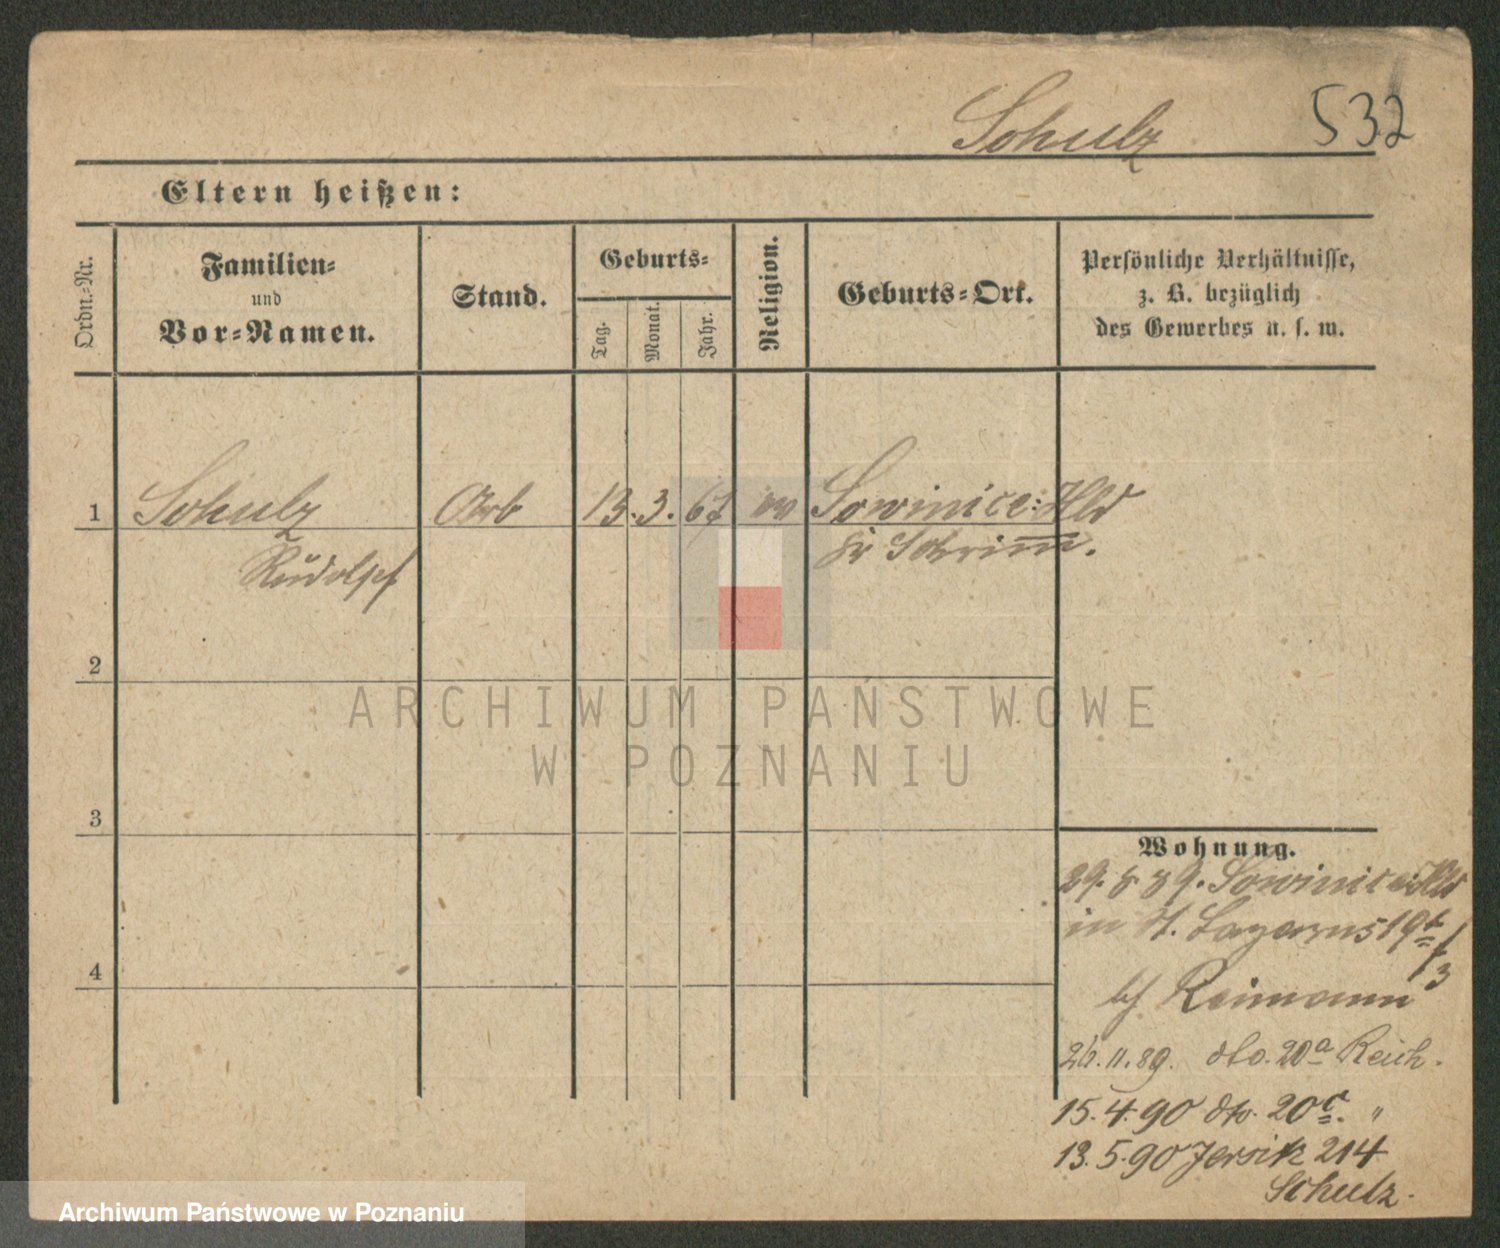 Schulz 532
Eltern heißen:
Ordn.-Nr.
Familien-
und
Vor-Namen.
Stand.
Geburts-
Tag.
Monat.
Jahr.
Religion.
Geburts-Ort.
Persönliche Verhältnisse,
z. B. bezüglich
des Gewerbes u. s. w.
1 Schulz Arb 13. 3. 67 ev Sowinice: Hld
Rudolf Kr Schrimm.
2
ARCHIWUM PAŃSTWOWE
W POZNANIU
3
Wohnung.
29. 8 89. Sowinice: Hld
in St. Lazarus 19b/3
4
bei Reimann
26. 11. 89. dto. 20a Reich.
15. 4. 90 dto. 20c. "
13. 5. 90 Jersitz 214
Schulz.
Archiwum Państwowe w Poznaniu